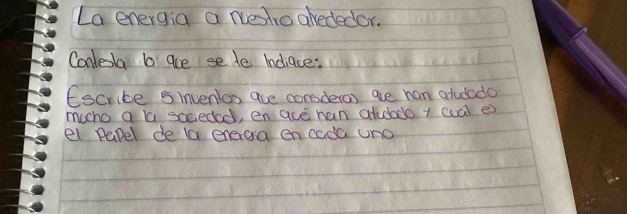 La energia a nuestro alrededor.
Contesta lo que se te indique:
Escribe 5 inventos que consideras que han ayudado
mucho a la sociedad, en que han ayudado y cual es
el papel de la energia en cada uno